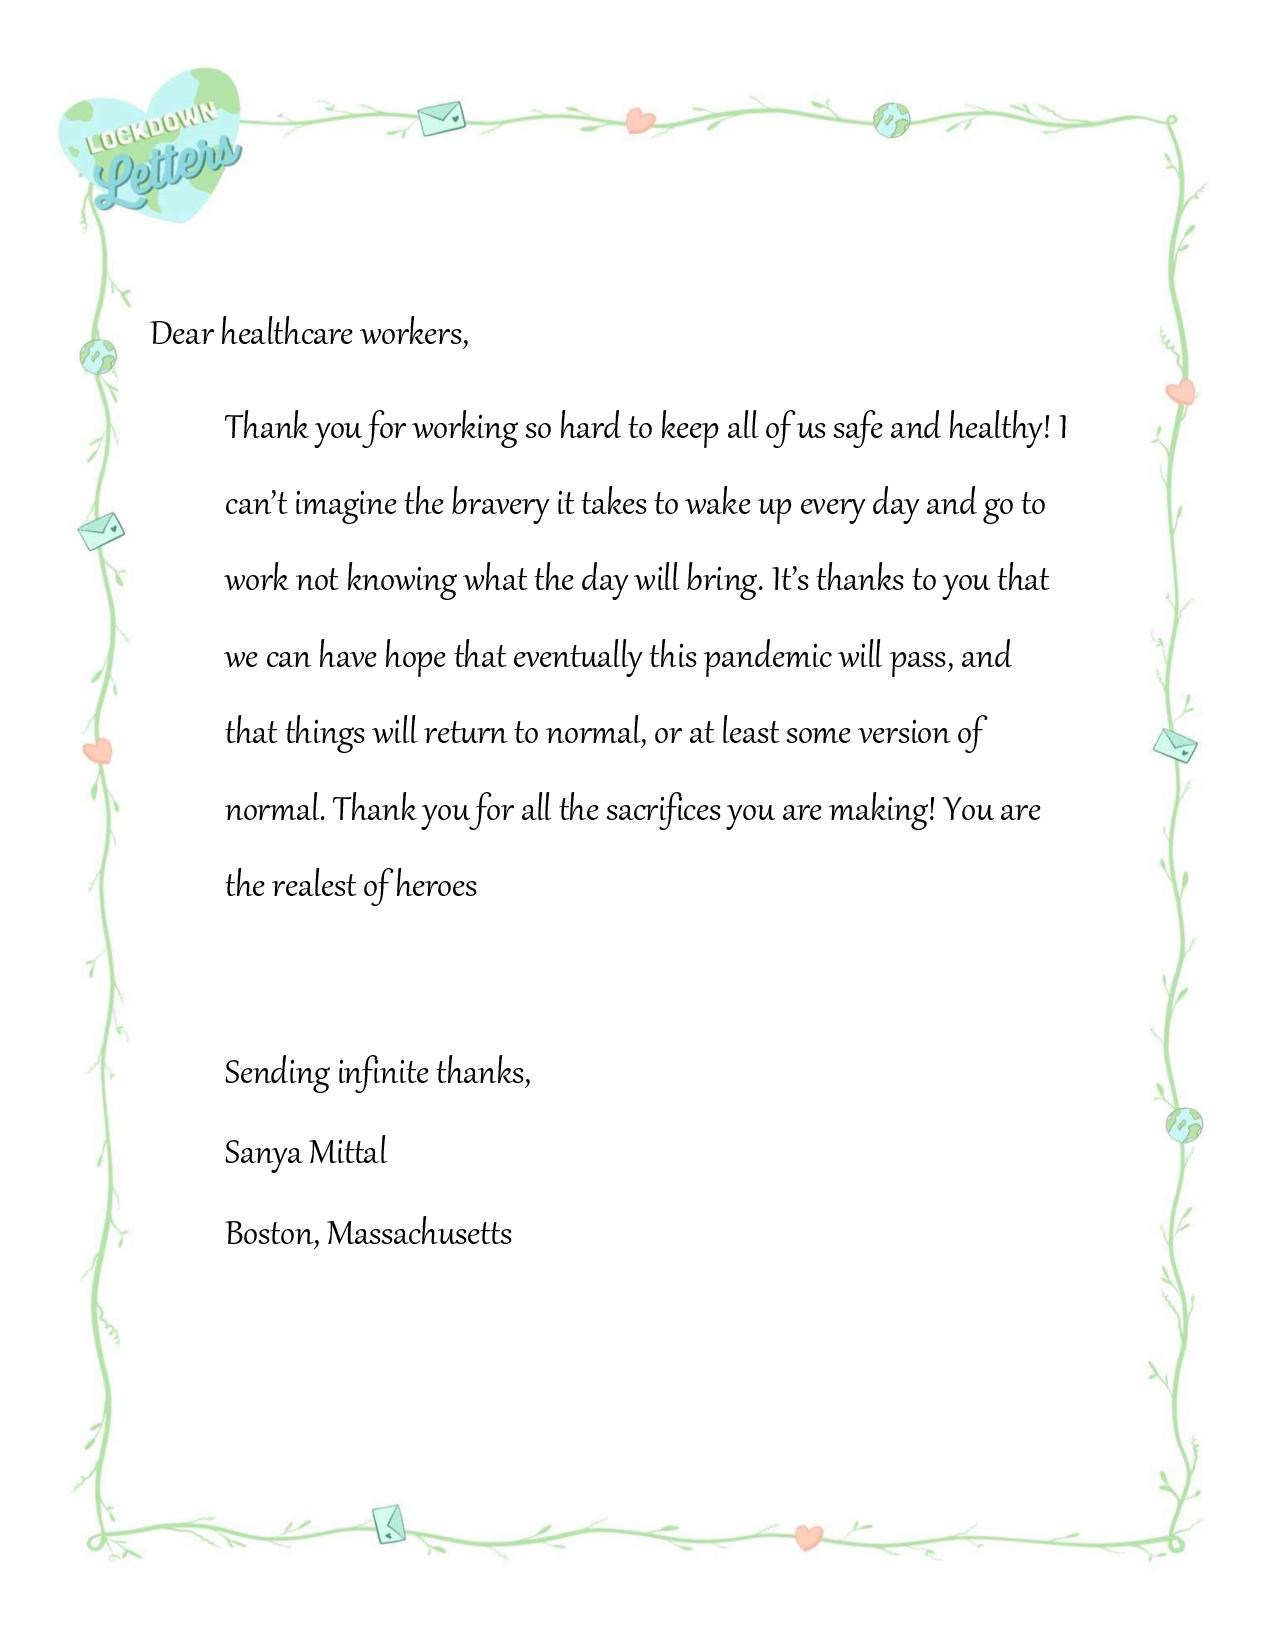 LOCKDOWN
Letters
Dear healthcare workers,
Thank you for working so hard to keep all of us safe and healthy! I
can’t imagine the bravery it takes to wake up every day and go to
work not knowing what the day will bring. It’s thanks to you that
we can have hope that eventually this pandemic will pass, and
that things will return to normal, or at least some version of
normal. Thank you for all the sacrifices you are making! You are
the realest of heroes
Sending infinite thanks,
Sanya Mittal
Boston, Massachusetts